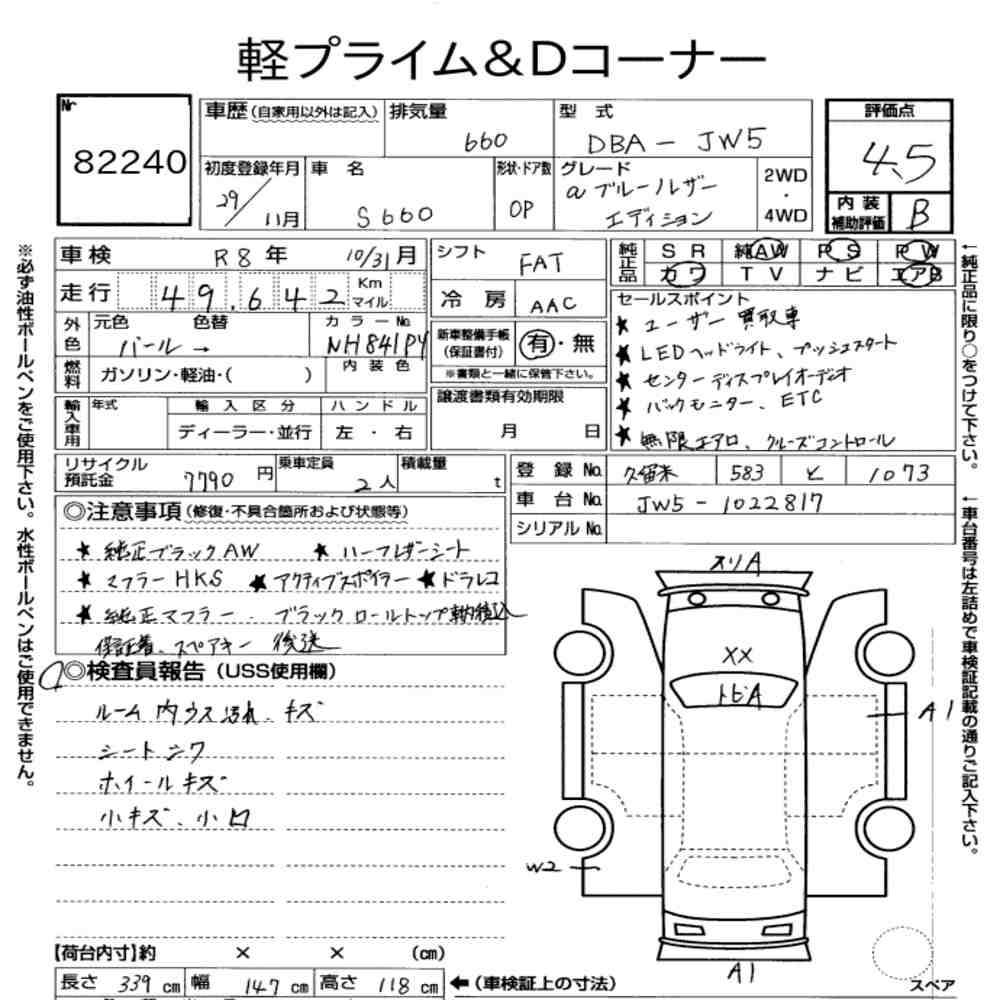 軽プライム&Dコーナー
Nr
82240
車歴 (自家用以外は記入)
排気量
660
型 式
DBA - JW5
評価点
4.5
初度登録年月
29/11月
車 名
S660
形状・ドア数
OP
グレード
α ブルーノレザー
エディション
2WD
・
4WD
内 装
補助評価
B
車 検 R8 年 10/31 月
走 行 49.642 Km
マイル
外色
元色 色替
パール →
カラーNo.
NH841P4
燃料
ガソリン・軽油・( )
内 装 色
輸入車用
年式
輸 入 区 分
ディーラー・並行
ハ ン ド ル
左 ・ 右
シフト FAT
冷 房 AAC
新車整備手帳
(保証書付)
有・無
※書類と一緒に保管下さい。
譲渡書類有効期限
月 日
純正品
S R 純AW P S P W
カワ T V ナ ビ エアB
セールスポイント
★ ユーザー買取車
★ LEDヘッドライト、プッシュスタート
★ センターディスプレイオーディオ
★ バックモニター、ETC
★ 無限エアロ、クルーズコントロール
リサイクル
預託金 7790 円
乗車定員
2人
積載量
t
登 録 No. 久留米 583 と 1073
車 台 No. JW5-1022817
シリアルNo.
◎注意事項(修復・不具合箇所および状態等)
★ 純正ブラックAW ★ ハーフレザーシート
★ マフラーHKS ★ アクティブスポイラー ★ ドラレコ
★ 純正マフラー、ブラックロールトップ車内積込
保証書、スペアキー 後送
◎検査員報告 (USS使用欄)
ルーム内ウス汚れ、キズ
シートシワ
ホイールキズ
小キズ、小凹
スリA
XX
トビA
A1
W2
A1
スペア
【荷台内寸】約 × × (cm)
長さ 339 cm 幅 147 cm 高さ 118 cm ←(車検証上の寸法)
※必ず油性ボールペンをご使用下さい。水性ボールペンはご使用できません。
←純正品に限り○をつけて下さい。
←車台番号は左詰めで車検証記載の通りご記入下さい。